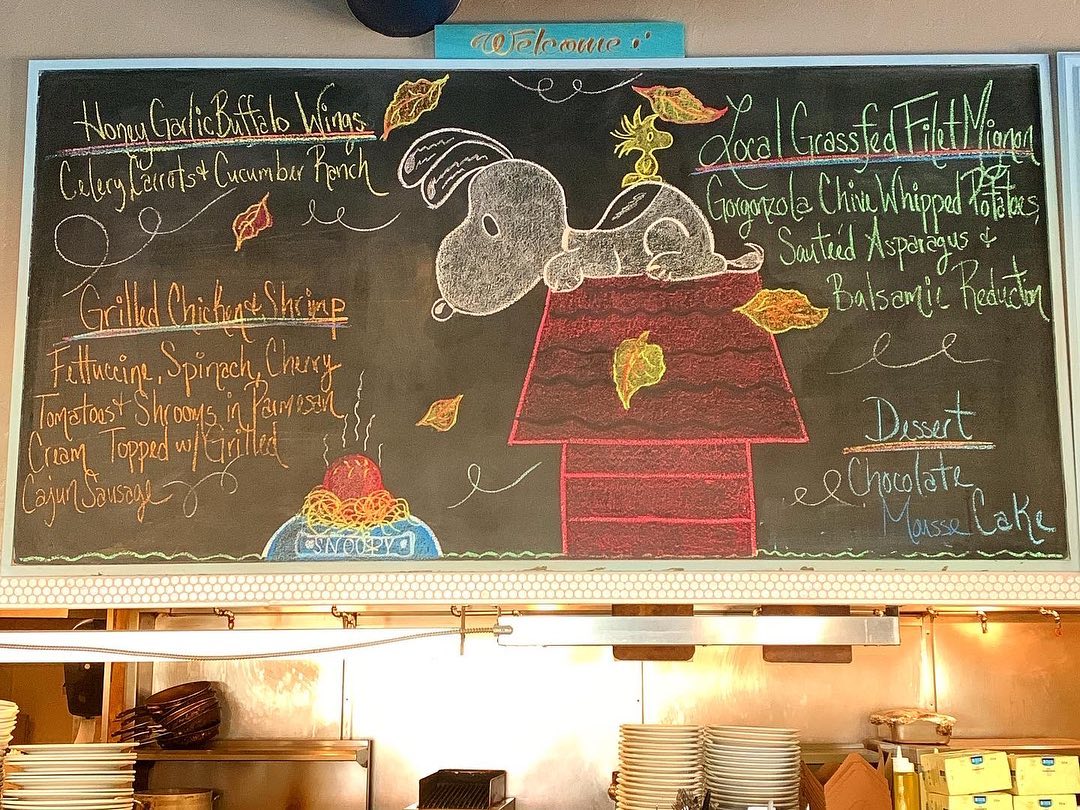 Welcome
Honey Garlic Buffalo Wings
Celery Carrots & Cucumber Ranch
Grilled Chicken & Shrimp
Fettuccine, Spinach, Cherry
Tomatoes & Shrooms in Parmesan
Cream Topped w/ Grilled
Cajun Sausage
SNOOPY
Local Grassfed Filet Mignon
Gorgonzola Chive Whipped Potatoes,
Sauteéd Asparagus &
Balsamic Reduction
Dessert
Chocolate
Mousse Cake